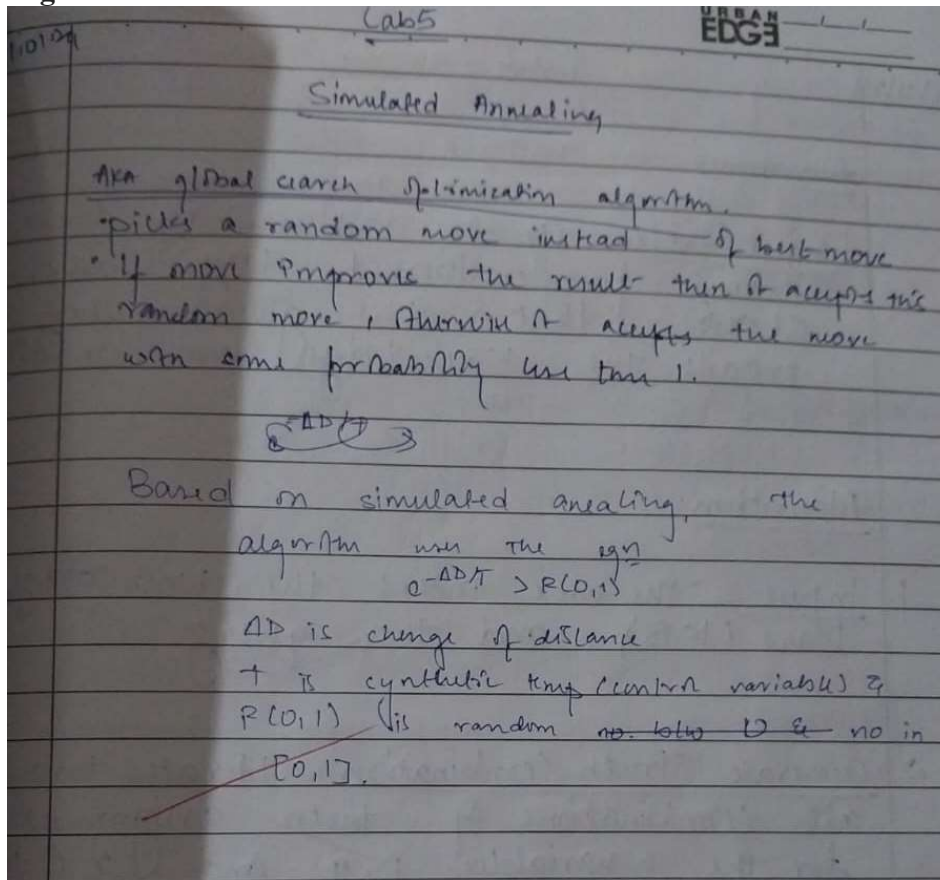 Lab5
URBAN EDGE
Simulated Annealing
AKA global search optimization algorithm.
• picks a random move instead of best move
• If move improves the result then it accepts this
random move, otherwise it accepts the move
with some probability less than 1.
-ΔD/T
Based on simulated anealing, the
algorithm uses the eqn
e^-ΔD/T > R(0,1)
ΔD is change of distance
T is synthetic temp (control variable) &
R(0,1) is random no. b/w 0 & no in
[0,1].